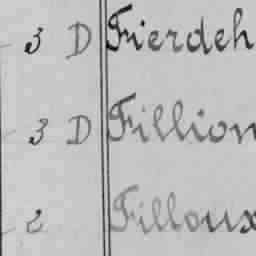 3 D Fierdeh
3 D Fillion
2 Filloux